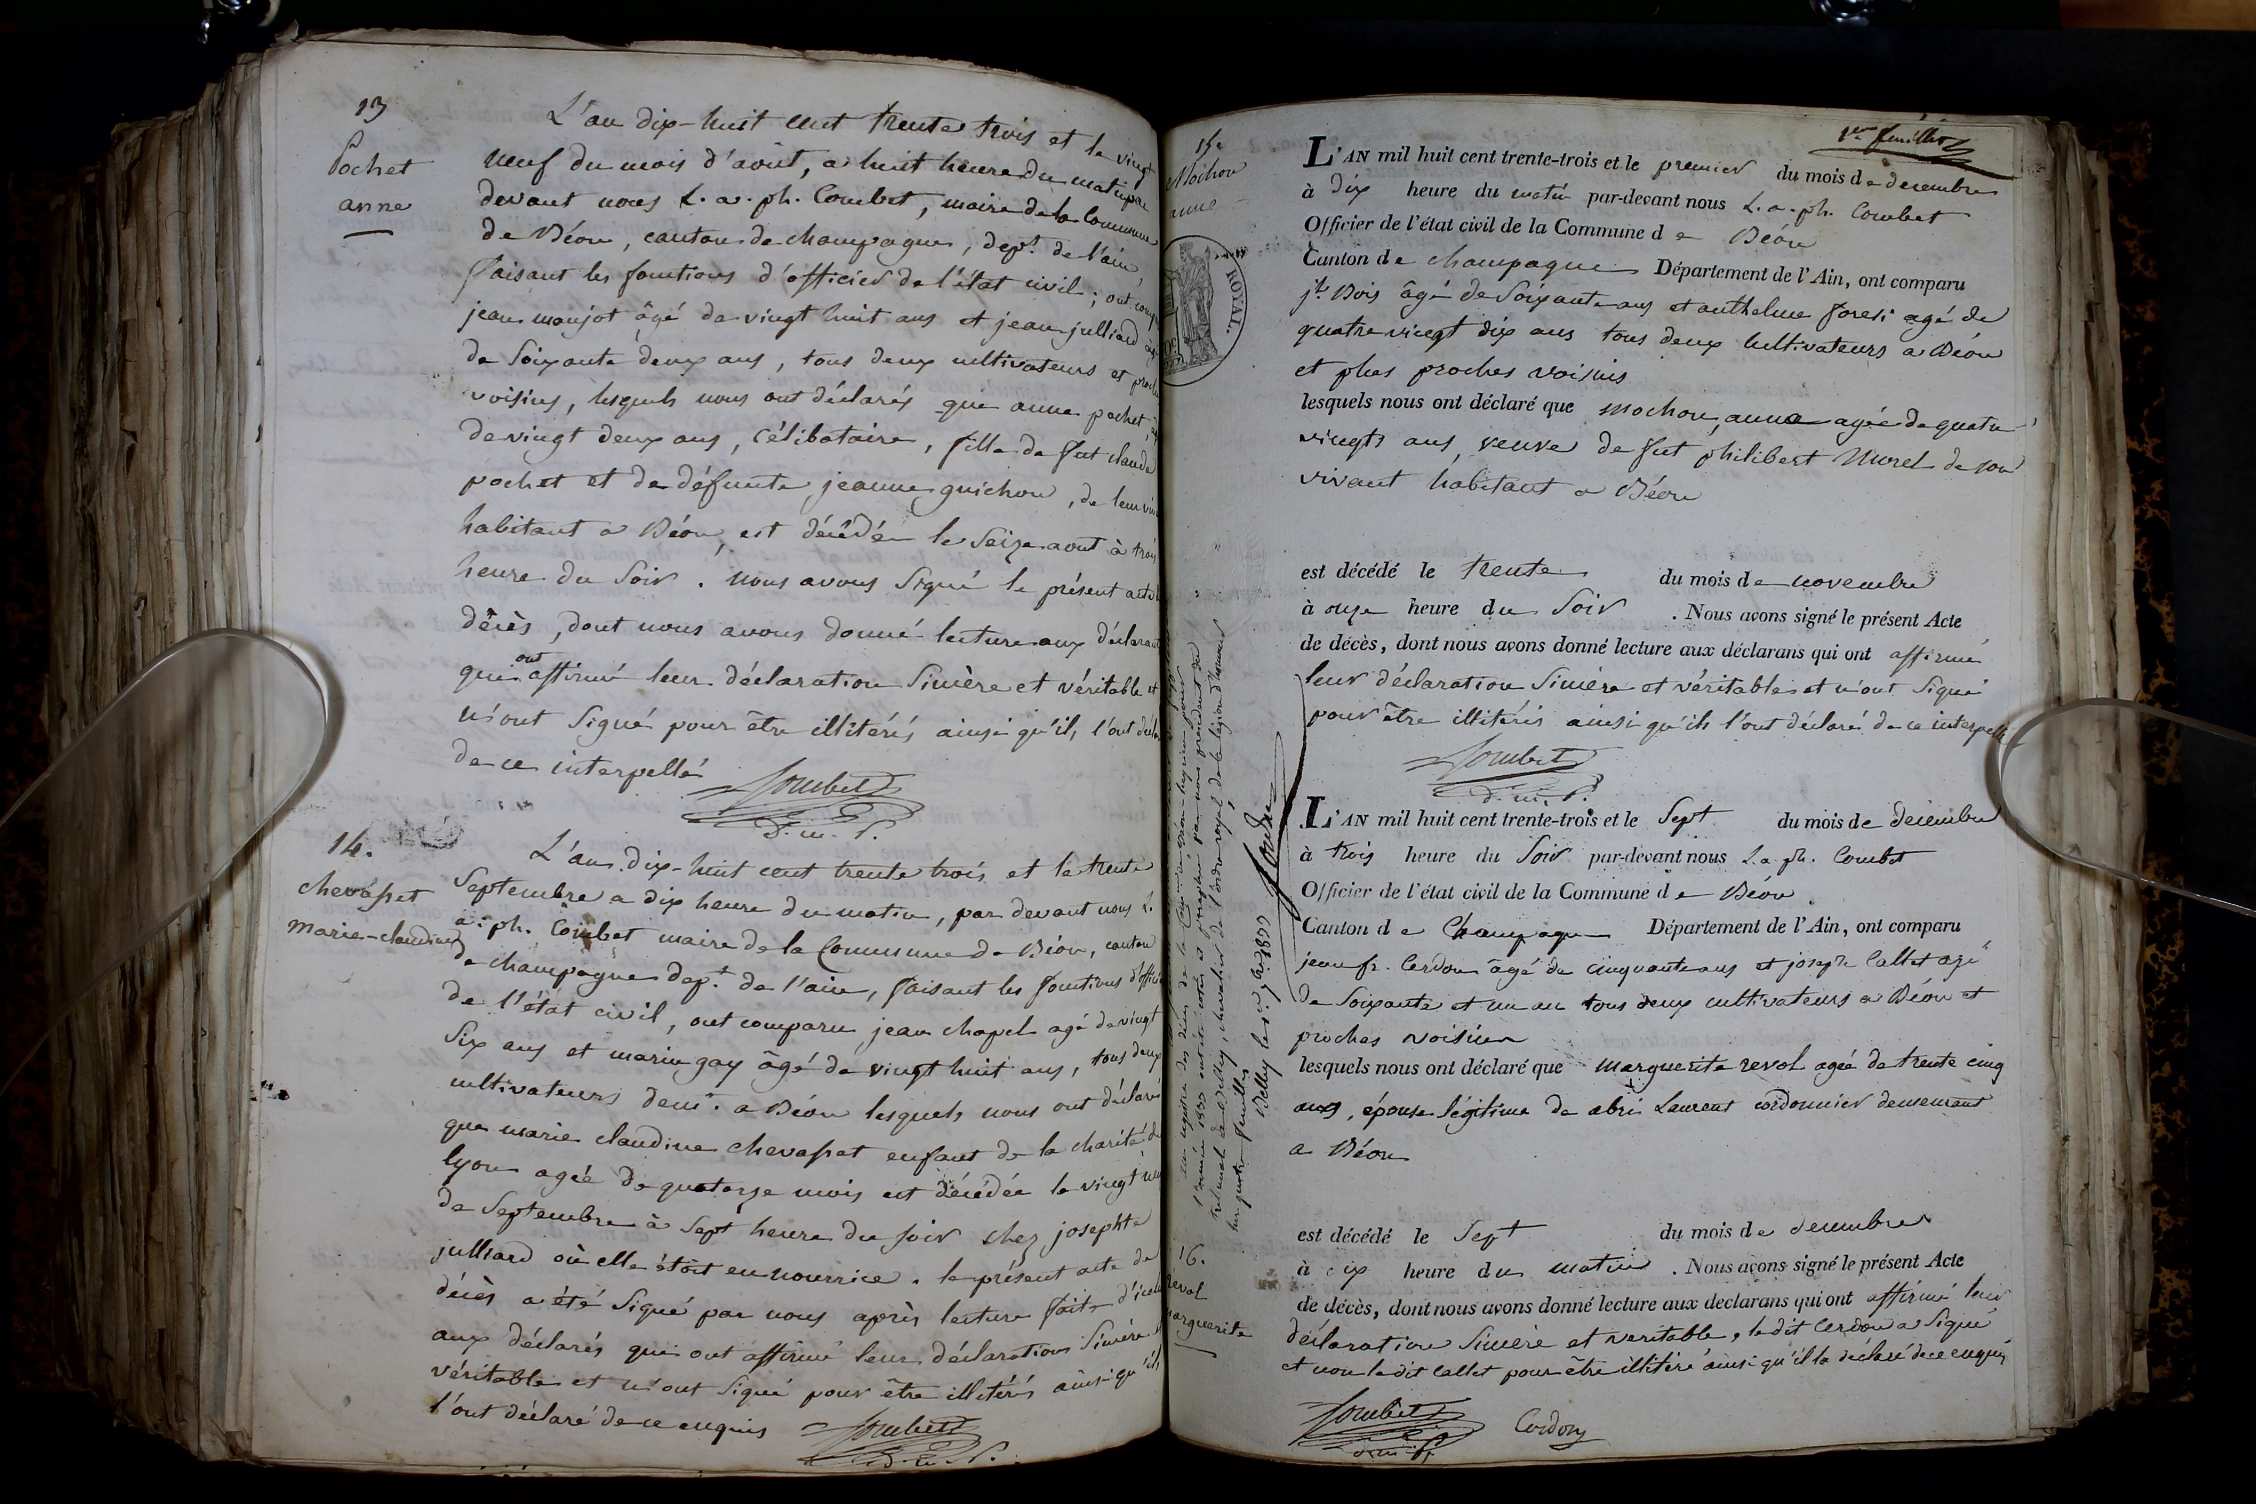 13
Pochet
anne
L'an dix-huit cent trente trois et le vingt
neuf du mois d'août, a huit heure du matin par
devant nous L. a. ph. Combet, maire de la Commune
de Béon, canton de champagne, dept. de l'ain
faisant les fonctions d'officier de l'état civil; ont comp
jean monjot âgé de vingt huit ans et jean julliard âgé
de soixante deux ans, tous deux cultivateurs et proche
voisins, lesquels nous ont déclarés que anne pochet,
de vingt deux ans, célibataire, fille de fut claude
pochet et de défunte jeanne guichon, de leur viv
habitant a Béon, est décédée le seize aout à trois
heure du soir. nous avons signé le présent acte d
décès, dont nous avons donné lecture aux déclarant
qui ont affirmé leur déclaration sincère et véritable et
n'ont signé pour être illitérés ainsi qu'ils l'ont décla
de ce interpellé
Combet
d. m. P.
14.
chevasset
marie-claudine
L'an dix-huit cent trente trois et le trente
septembre a dix heure du matin, par devant nous L.
a. ph. Combet maire de la Commune de Béon, canton
de champagne dept. de l'ain, faisant les fonctions d'offici
de l'état civil, ont comparu jean chapel agé de vingt
six ans et marin gay âgé de vingt huit ans, tous deux
cultivateurs demt. a Béon lesquels nous ont déclaré
que marie claudine chevasset enfant de la charité de
lyon agée de quatorze mois est décédée le vingt neu
de septembre à sept heure du soir chez josephte
julliard où elle étoit en nourrice. le présent acte de
décès a été signé par nous après lecture faite d'icelui
aux déclarés qui ont affirmé leur déclaration sincère et
véritable et n'ont signé pour être illitérés ainsi qu'ils
l'ont déclaré de ce enquis
Combet
d. m. P.
1er feuillet
15e
Mochon
anne
ROYAL.
L'AN mil huit cent trente-trois et le premier du mois de decembre
à dix heure du matin par-devant nous L. a. ph. Combet
Officier de l'état civil de la Commune de Béon
Canton de champagne Département de l'Ain, ont comparu
jh. Bois âgé de soixante ans et anthelme foresi agé de
quatre vingt dix ans tous deux cultivateurs a Béon
et plus proches voisins
lesquels nous ont déclaré que mochon, anne agée de quatre
vingts ans, veuve de fut philibert Murel de son
vivant habitant a Béon
est décédé le trente du mois de novembre
à onze heure du soir. Nous avons signé le présent Acte
de décès, dont nous avons donné lecture aux déclarans qui ont affirmé
leur déclaration sincère et véritable et n'ont signé
pour être illitérés ainsi qu'ils l'ont déclaré de ce interpellé
Combet
d. m. P.
L'AN mil huit cent trente-trois et le sept du mois de decembre
à trois heure du soir par-devant nous L. a. ph. Combet
Officier de l'état civil de la Commune de Béon
Canton de Champagne Département de l'Ain, ont comparu
jean fr. Cerdon âgé de cinquante ans et joseph Callet agé
de soixante et un an tous deux cultivateurs a Béon et
proches voisins
lesquels nous ont déclaré que marguerite revol agée de trente cinq
ans, épouse légitime de abri Laurent cordonnier demeurant
a Béon
est décédé le sept du mois de decembre
à dix heure du matin. Nous avons signé le présent Acte
de décès, dont nous avons donné lecture aux declarans qui ont affirmé leur
déclaration sincère et veritable, le dit Cerdon a signé
et non le dit Callet pour être illitéré ainsi qu'il l'a déclaré de ce enquis
Combet
d. m. P.
Cerdon
16.
revol
marguerite
l'année 1833 ont été cotés et paraphés par nous président du
tribunal de Belley, chevalier de l'ordre royal de la légion d'honneur
sur quatre feuillets